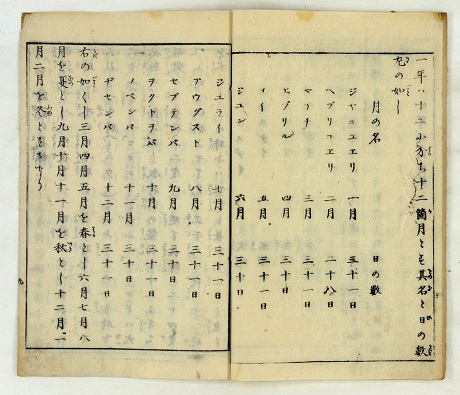 一年ハ十二に分ち十二箇月とす其名と日の数
左の如し
月の名 日の数
ジャニュエリ 一月 三十一日
ヘブリュエリ 二月 二十八日
マアチ 三月 三十一日
エプリル 四月 三十日
メイ 五月 三十一日
ジュン 六月 三十日
ジュライ 七月 三十一日
アウグスト 八月 三十一日
セプテンバ 九月 三十日
ヲクトヲバ 十月 三十一日
ノベンバ 十一月 三十日
ヂセンバ 十二月 三十一日
右の如く三月四月五月を春とし六月七月八
月を夏とし九月十月十一月を秋とし十二月一
月二月を冬とするなり